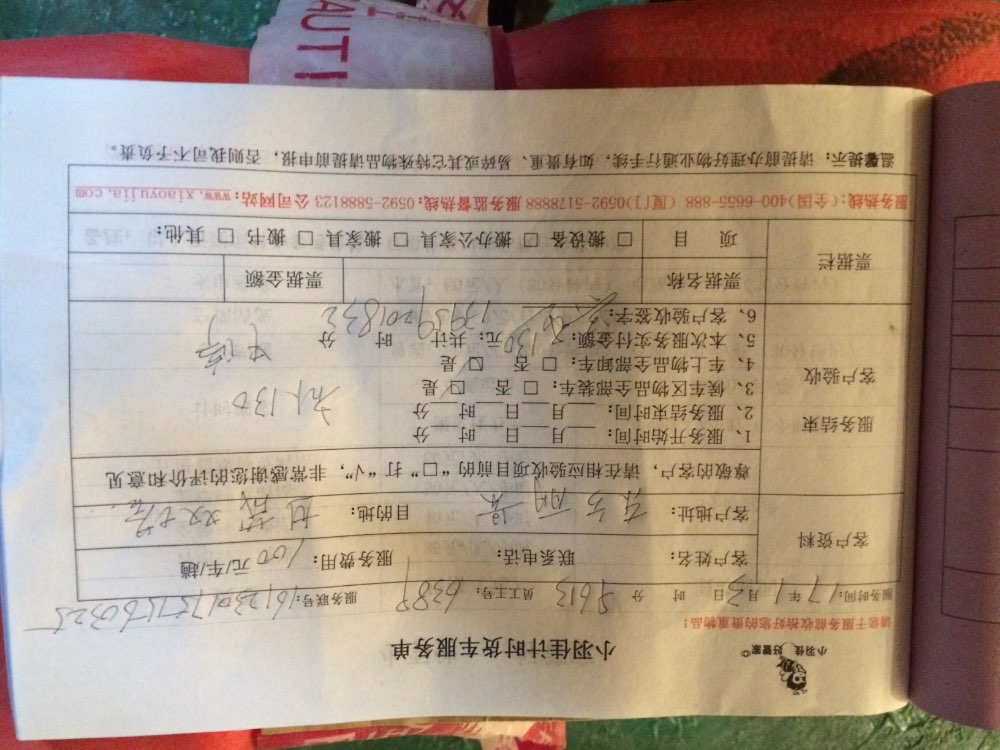 小羽佳 好管家
小羽佳计时货车服务单
请您于服务前收拾好您的贵重物品!
服务时间: 17年1月3日 时 分 5613 员工工号: 6389 服务联号:
客户资料
客户姓名: 联系电话: 服务费用: 100元/车/趟
客户地址: 目的地:
尊敬的客户,请在相应验收项目前的“□”打“√”,非常感谢您的评价和意见
服务结束
客户验收
1、服务开始时间: 月 日 时 分
2、服务结束时间: 月 日 时 分
3、候车区物品全部装车: □ 否 □ 是
4、车上物品全部卸车: □ 否 □ 是
5、本次服务实付金额: 130 元; 共计: 时 分
6、客户验收签字: 13959201832
130
票据栏
票据名称 票据金额
项 目 □ 搬设备 □ 搬办公家具 □ 搬家具 □ 搬书 □ 其他:
服务热线:(全国)400-6655-888 (厦门)0592-5178888 服务监督热线:0592-5888123 公司网站:www.xiaoyujia.com
温馨提示: 请提前办理好物业通行手续,如有贵重、易碎或其它特殊物品请提前申报,否则我司不予负责。
AUTI